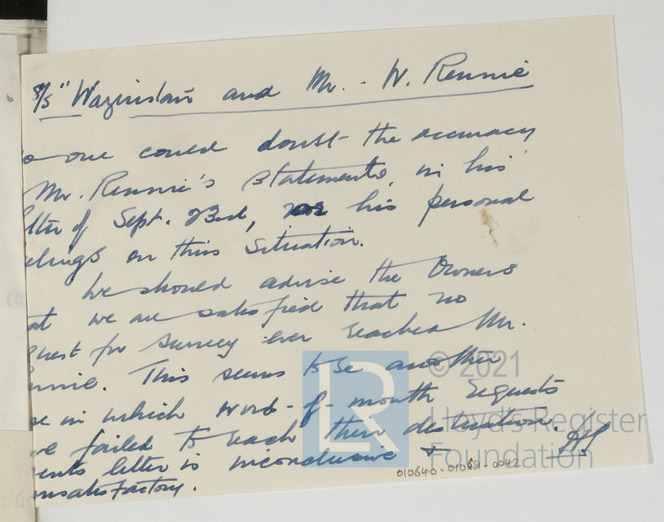 S/S "Waziristan and Mr. - W. Rennie
o one could doubt the accuracy
Mr. Rennie's statements, in his
tter of Sept. 23rd, nor his personal
elings on this situation.
We should advise the Owners
at we are satisfied that no
quest for survey ever reached Mr.
nnie. This seems to be another
se in which word-of-mouth requests
ve failed to reach their destination.
ents letter is inconclusive +
nsatisfactory.
010640-010651-0042
© 2021
Lloyd's Register
Foundation
LR